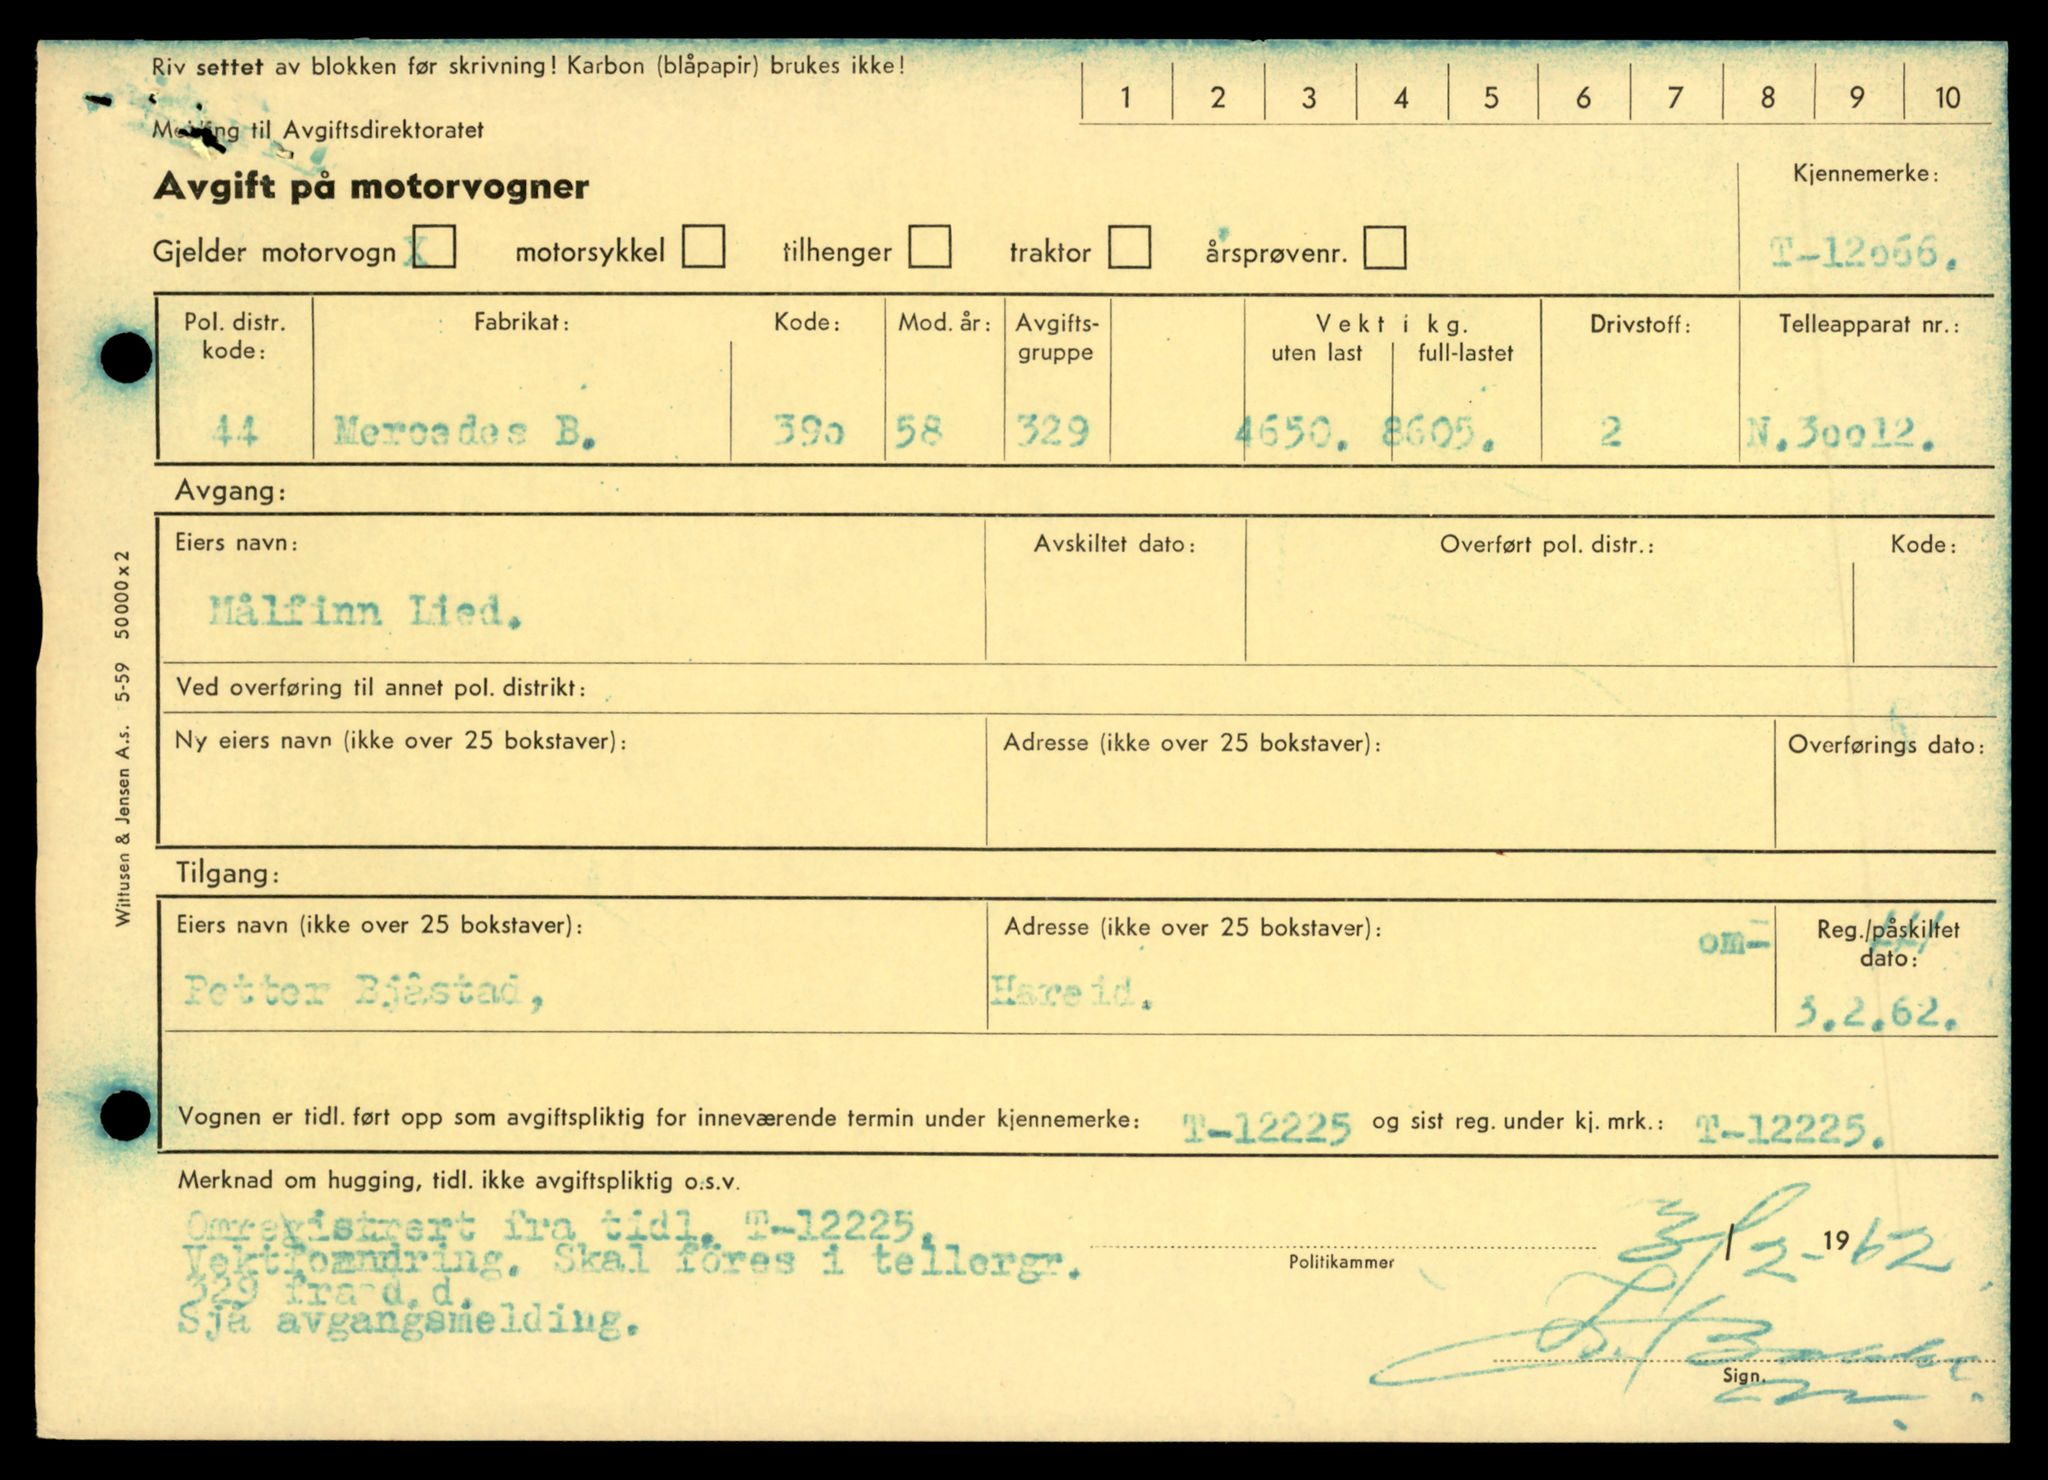 Riv settet av blokken før skrivning! Karbon (blåpapir) brukes ikke!
1 2 3 4 5 6 7 8 9 10
Melding til Avgiftsdirektoratet
Avgift på motorvogner
Kjennemerke:
Gjelder motorvogn X motorsykkel tilhenger traktor årsprøvenr.
T-12o66.
Pol. distr. kode: Fabrikat: Kode: Mod. år: Avgifts-gruppe Vekt i kg. uten last full-lastet Drivstoff: Telleapparat nr.:
44 Mercedes B. 39o 58 329 4650. 8605. 2 N.3oo12.
Avgang:
Eiers navn: Avskiltet dato: Overført pol. distr.: Kode:
Målfinn Lied.
Ved overføring til annet pol. distrikt:
Ny eiers navn (ikke over 25 bokstaver): Adresse (ikke over 25 bokstaver): Overførings dato:
Tilgang:
Eiers navn (ikke over 25 bokstaver): Adresse (ikke over 25 bokstaver): om- Reg./påskiltet dato:
Petter Bjåstad, Hareid. 3.2.62.
Vognen er tidl. ført opp som avgiftspliktig for inneværende termin under kjennemerke: T-12225 og sist reg. under kj. mrk.: T-12225.
Merknad om hugging, tidl. ikke avgiftspliktig o.s.v.
Omregistrert fra tidl. T-12225.
Vektfomndring. Skal föres i tellergr.
329 fra d.d.
Sjå avgangsmelding.
Politikammer
3/2- 1962
Sign.
Wittusen & Jensen A.s. 5-59 50000x2